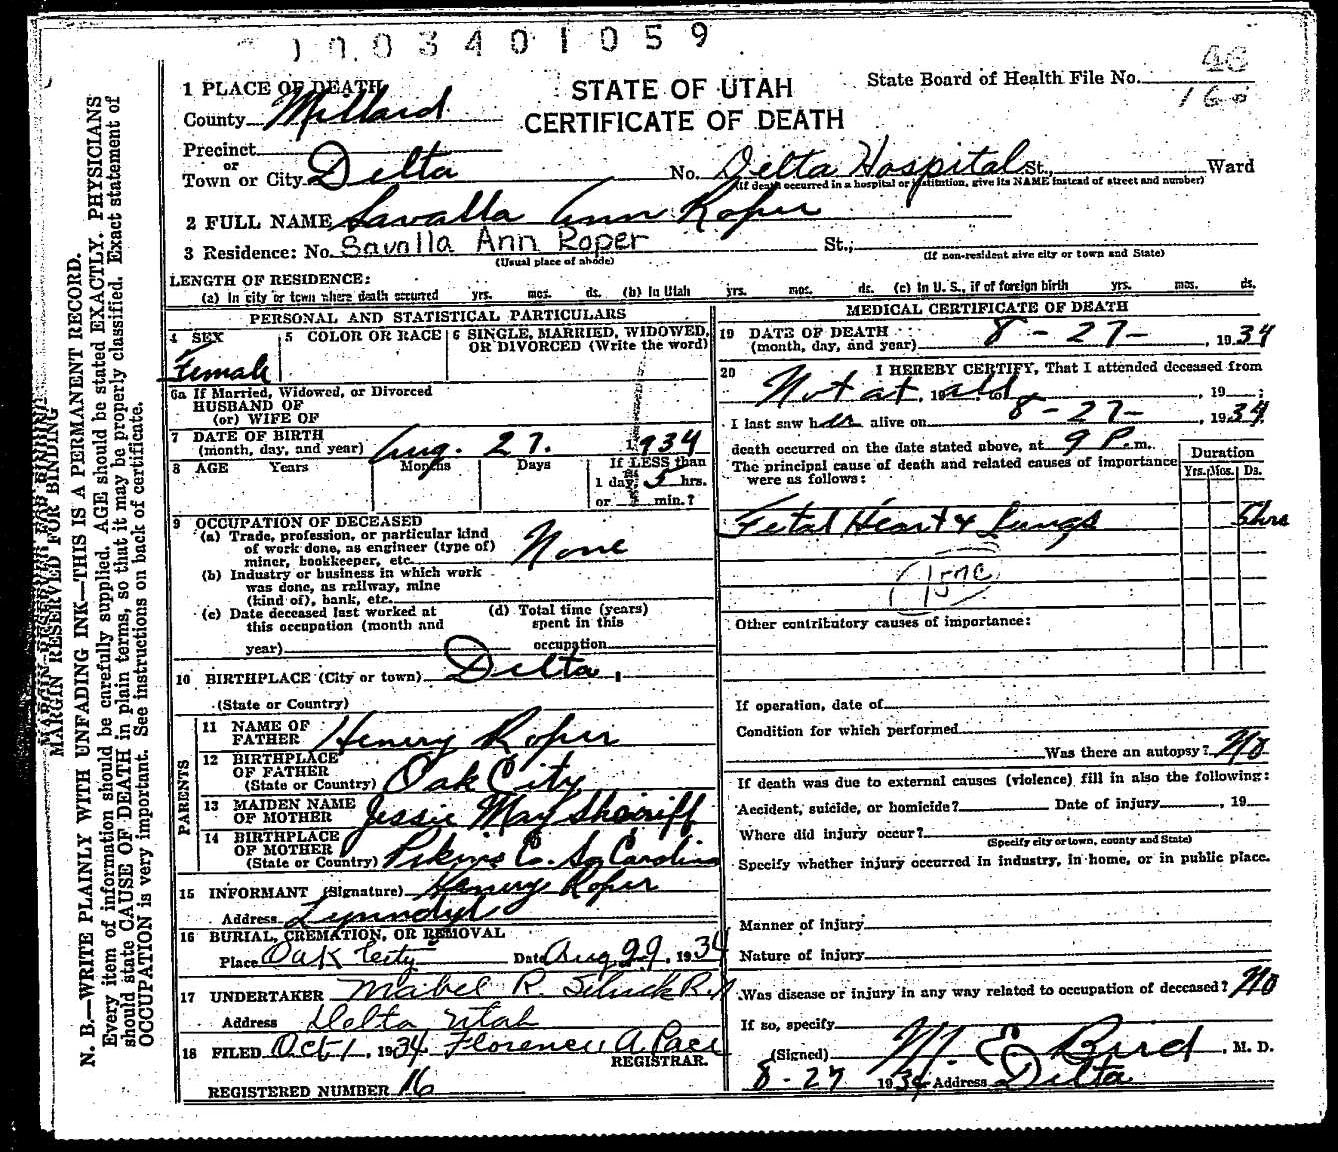 1003401059
STATE OF UTAH
CERTIFICATE OF DEATH
State Board of Health File No. 48
160
1 PLACE OF DEATH
County Millard
Precinct
or
Town or City Delta No. Delta Hospital St., Ward
(If death occurred in a hospital or institution, give its NAME instead of street and number)
2 FULL NAME Savalla Ann Roper
3 Residence: No. Savalla Ann Roper St.,
(Usual place of abode) (If non-resident give city or town and State)
LENGTH OF RESIDENCE:
(a) In city or town where death occurred yrs. mos. ds. (b) In Utah yrs. mos. ds. (c) In U. S., if of foreign birth yrs. mos. ds.
PERSONAL AND STATISTICAL PARTICULARS
4 SEX 5 COLOR OR RACE 6 SINGLE, MARRIED, WIDOWED,
OR DIVORCED (Write the word)
Female
6a If Married, Widowed, or Divorced
HUSBAND OF
(or) WIFE OF
7 DATE OF BIRTH
(month, day, and year) Aug. 27. 1934
8 AGE Years Months Days If LESS than
1 day, 5 hrs.
or min.?
9 OCCUPATION OF DECEASED
(a) Trade, profession, or particular kind
of work done, as engineer (type of)
miner, bookkeeper, etc. None
(b) Industry or business in which work
was done, as railway, mine
(kind of), bank, etc.
(c) Date deceased last worked at (d) Total time (years)
this occupation (month and spent in this
year) occupation
10 BIRTHPLACE (City or town) Delta,
(State or Country)
PARENTS
11 NAME OF
FATHER Henery Roper
12 BIRTHPLACE
OF FATHER
(State or Country) Oak City
13 MAIDEN NAME
OF MOTHER Jessie May Sheiriff
14 BIRTHPLACE
OF MOTHER
(State or Country) Co. So Carolina
15 INFORMANT (Signature) Henery Roper
Address Lynndyl
16 BURIAL, CREMATION, OR REMOVAL
Place Oak City Date Aug 29, 1934
17 UNDERTAKER Mabel R.
Address Delta Utah
18 FILED Oct 1, 1934 Florence A. Pace
REGISTRAR.
REGISTERED NUMBER 16
MEDICAL CERTIFICATE OF DEATH
19 DATE OF DEATH
(month, day, and year) 8-27-, 1934
20 I HEREBY CERTIFY, That I attended deceased from
Not at all, 19 to , 19 ;
I last saw her alive on 8-27-, 1934
death occurred on the date stated above, at 9 P.m.
The principal cause of death and related causes of importance
were as follows:
Duration
Yrs. Mos. Ds.
Fetal Heart & Lungs 5hrs
157C
Other contributory causes of importance:
If operation, date of
Condition for which performed
Was there an autopsy? No
If death was due to external causes (violence) fill in also the following:
Accident, suicide, or homicide? Date of injury , 19
Where did injury occur?
(Specify city or town, county and State)
Specify whether injury occurred in industry, in home, or in public place.
Manner of injury
Nature of injury
Was disease or injury in any way related to occupation of deceased? No
If so, specify
(Signed) M E Bird, M. D.
8-27 1934 Address Delta
MARGIN RESERVED FOR BINDING
N. B.—WRITE PLAINLY WITH UNFADING INK—THIS IS A PERMANENT RECORD.
Every item of information should be carefully supplied. AGE should be stated EXACTLY. PHYSICIANS
should state CAUSE OF DEATH in plain terms, so that it may be properly classified. Exact statement of
OCCUPATION is very important. See instructions on back of certificate.